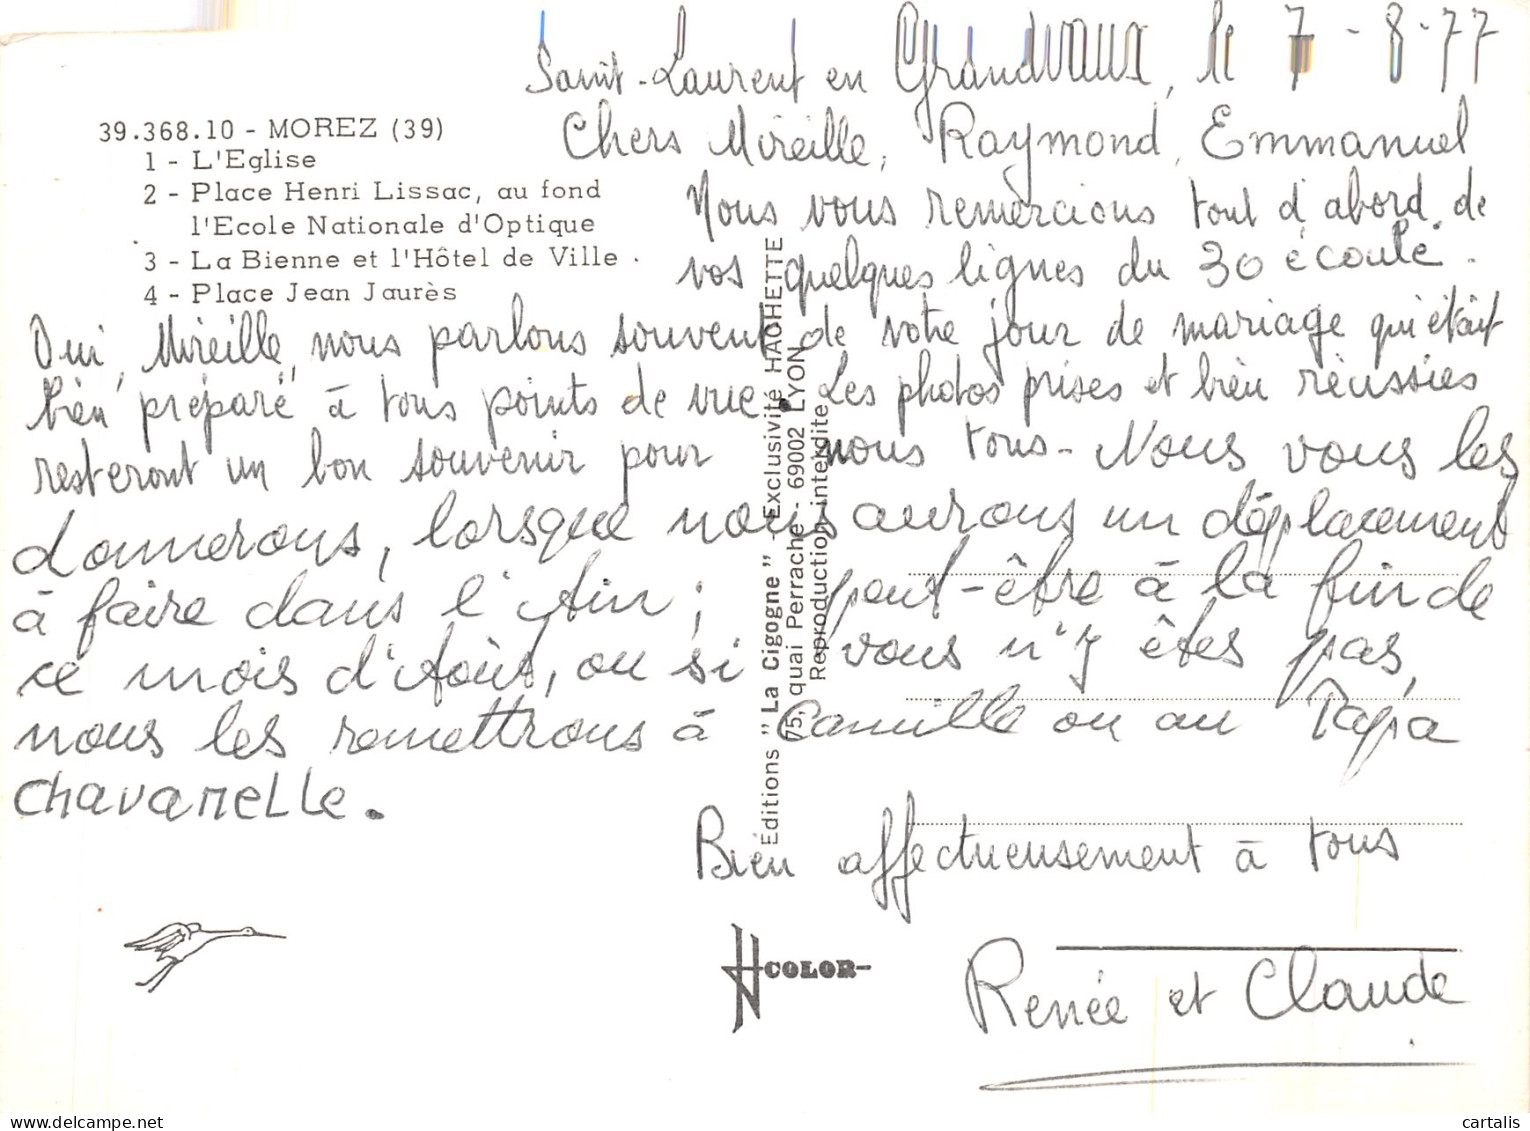 Saint-Laurent en Grandvaux, le 7-8-77
39.368.10 - MOREZ (39)
1 - L'Eglise
2 - Place Henri Lissac, au fond
l'Ecole Nationale d'Optique
3 - La Bienne et l'Hôtel de Ville
4 - Place Jean Jaurès
Chers Mireille, Raymond, Emmanuel
Nous vous remercions tout d'abord, de
vos quelques lignes du 30 écoulé.
Oui, Mireille, nous parlons souvent de votre jour de mariage qui était
bien préparé à tous points de vue. Les photos prises et bien réussies
resteront un bon souvenir pour nous tous - Nous vous les
donnerons, lorsque nous aurons un déplacement
à faire dans l'Ain; peut-être à la fin de
ce mois d'Août, ou si vous n'y êtes pas,
nous les remettrons à Camille ou au Papa
Chavanelle.
Bien affectueusement à tous
Renée et Claude
Editions "La Cigogne" - Exclusivité HACHETTE
75, quai Perrache - 69002 LYON
Reproduction interdite
COLOR
cartalis